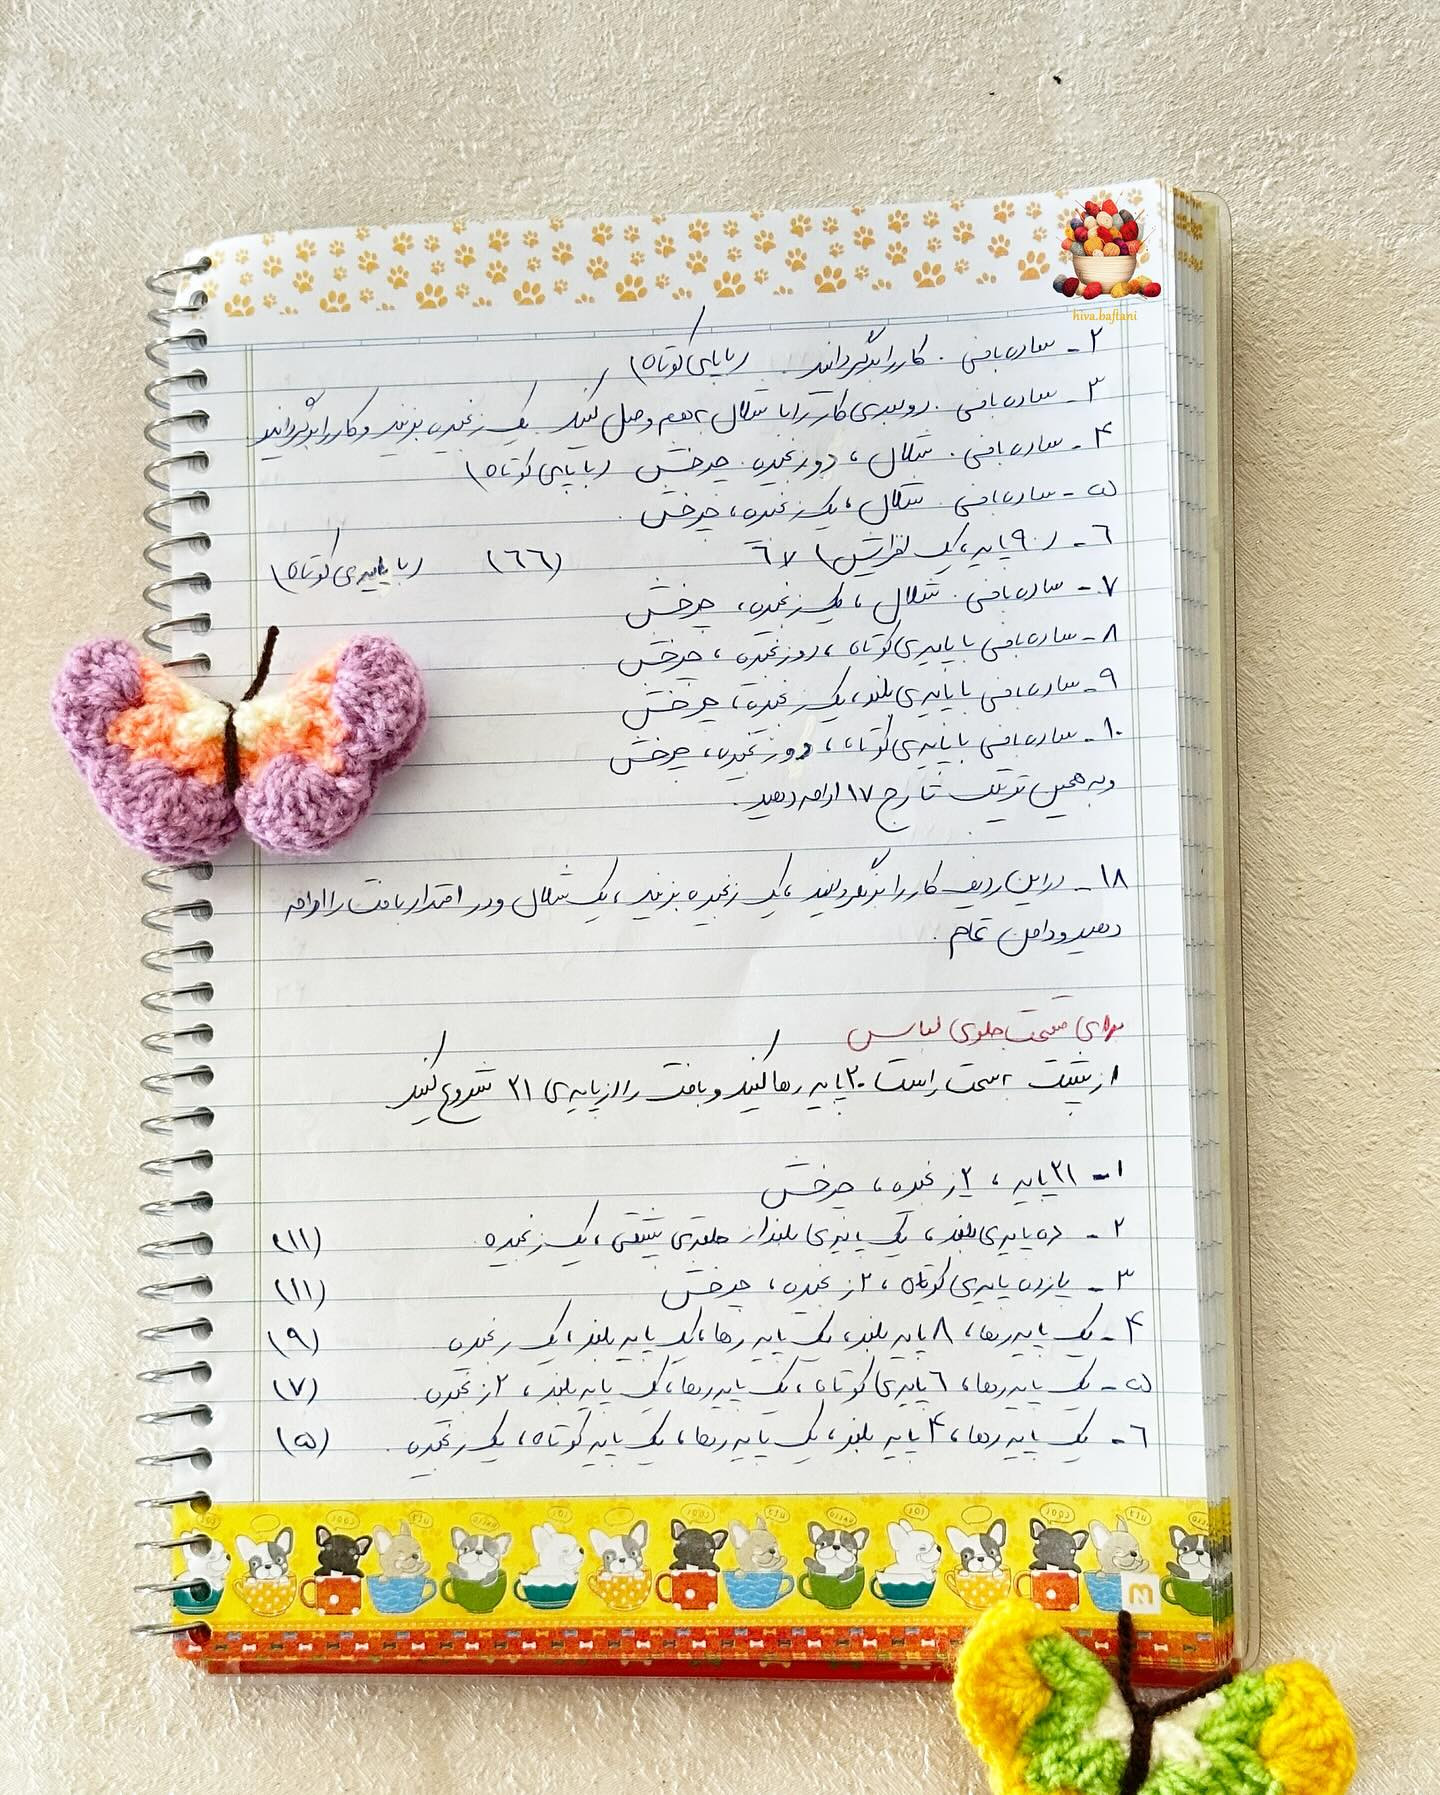 hiva.baftani
۲- ساده بافی. کار را برگردانید. (با پایه‌ی کوتاه)
۳- ساده بافی. دو سری کار را با شلال بهم وصل کنید. یک زنجیره بزنید و کار را برگردانید
۴- ساده بافی. شلال، دو زنجیره. چرخش (با پایه‌ی کوتاه)
۵- ساده بافی. شلال، یک زنجیره، چرخش.
۶- (۹ پایه، یک افزایش) ۶٧ (۶۶) (با پایه‌ی کوتاه)
۷- ساده بافی. شلال، یک زنجیره، چرخش
۸- ساده بافی با پایه‌ی کوتاه، دو زنجیره، چرخش.
۹- ساده بافی با پایه‌ی بلند، یک زنجیره، چرخش
۱۰- ساده بافی با پایه‌ی کوتاه، دو زنجیره، چرخش
و به همین ترتیب تا رج ۱۷ ادامه دهید.
۱۸- در این ردیف کار را برنگردانید، یک زنجیره بزنید، یک شلال و در امتداد بافت را ادامه
دهید و دامن تمام.
برای قسمت جلوی لباس
از پشت به سمت راست ۲۰ پایه رها کنید و بافت را از پایه‌ی ۲۱ شروع کنید
۱- ۲۱ پایه، ۲ زنجیره، چرخش
۲- ده پایه‌ی بلند، یک پایه‌ی بلند از حلقه‌ی پشتی، یک زنجیره. (۱۱)
۳- یازده پایه‌ی کوتاه، ۲ زنجیره، چرخش (۱۱)
۴- یک پایه رها، ۸ پایه بلند، یک پایه رها، یک پایه بلند، یک زنجیره (۹)
۵- یک پایه رها، ۶ پایه‌ی کوتاه، یک پایه رها، یک پایه بلند، ۲ زنجیره. (۷)
۶- یک پایه رها، ۴ پایه بلند، یک پایه رها، یک پایه کوتاه، یک زنجیره. (۵)